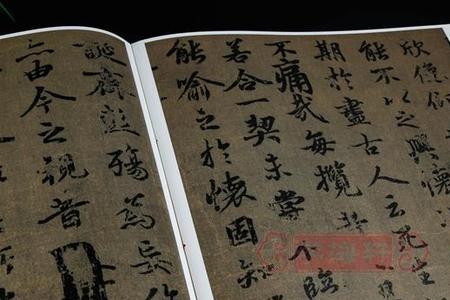 欣俛仰
能不以之興懷
期於盡古人云死生
不痛哉每攬昔
若合一契未嘗不臨
能喻之於懷固知
誕齊彭殤為妄
亦由今之視昔